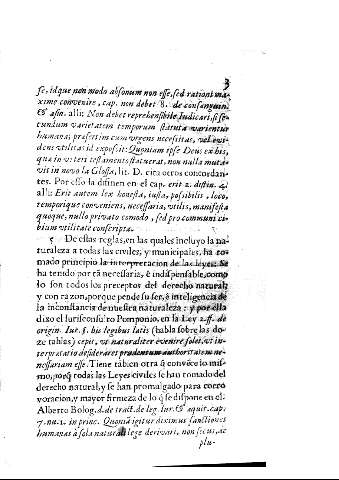 3
se, idque non modo absonum non esse, sed rationi ma-
xime convenire, cap. non debet 8. de consanguin.
& afin. alli: Non debet reprehensibile Iudicari, si se-
cundum varietatem temporum statuta varientur
humana; præsertim cum vrgens necesitas, vel evi-
dens vtilitas id exposit: Quoniam ipse Deus ex his,
quæ in veteri testamento statuerat, non nulla muta-
vit in novo la Glossa, lit. D. cita otros concordan-
tes. Por esso la difinen en el cap. erit 2. distin. 4.
alli: Erit autem lex honesta, iusta, possibilis, loco,
temporique conveniens, necessaria, vtilis, manifesta
quoque, nullo privato comodo, sed pro communi ci-
bium vtilitate conscripta.
5 De estas reglas, en las quales incluyo la na-
turaleza a todas las civiles, y municipales, ha to-
mado principio la interpretacion de las leyes. Se
ha tenido por tã necessaria, è indispensable, como
lo son todos los preceptos del derecho natural;
y con razon, porque pende su ser, è inteligencia de
la inconstancia de nuestra naturaleza: y por ella
dixo el Iurisconsulto Pomponio, en la Ley 2. ff. de
origin. Iur. §. his legibus latis (habla sobre las do-
ze tablas) cepit, vt naturaliter evenire solet, vt in-
terpretatio desideraret prudentum authoritatem ne-
cessariam esse. Tiene tãbien otra q̃ convẽce lo mis-
mo, poes q̃ todas las Leyes civiles se han tomado del
derecho natural, y se han promalgado para corro
voracion, y mayor firmeza de lo q̃ se dispone en el.
Alberto Bolog. d. de tract. de leg. Iur. & æquit. cap.
7. nu. 1. in princ. Quoniã igitur diximus sanctiones
humanas à sola naturali lege derivari, non secus, ac
plu-